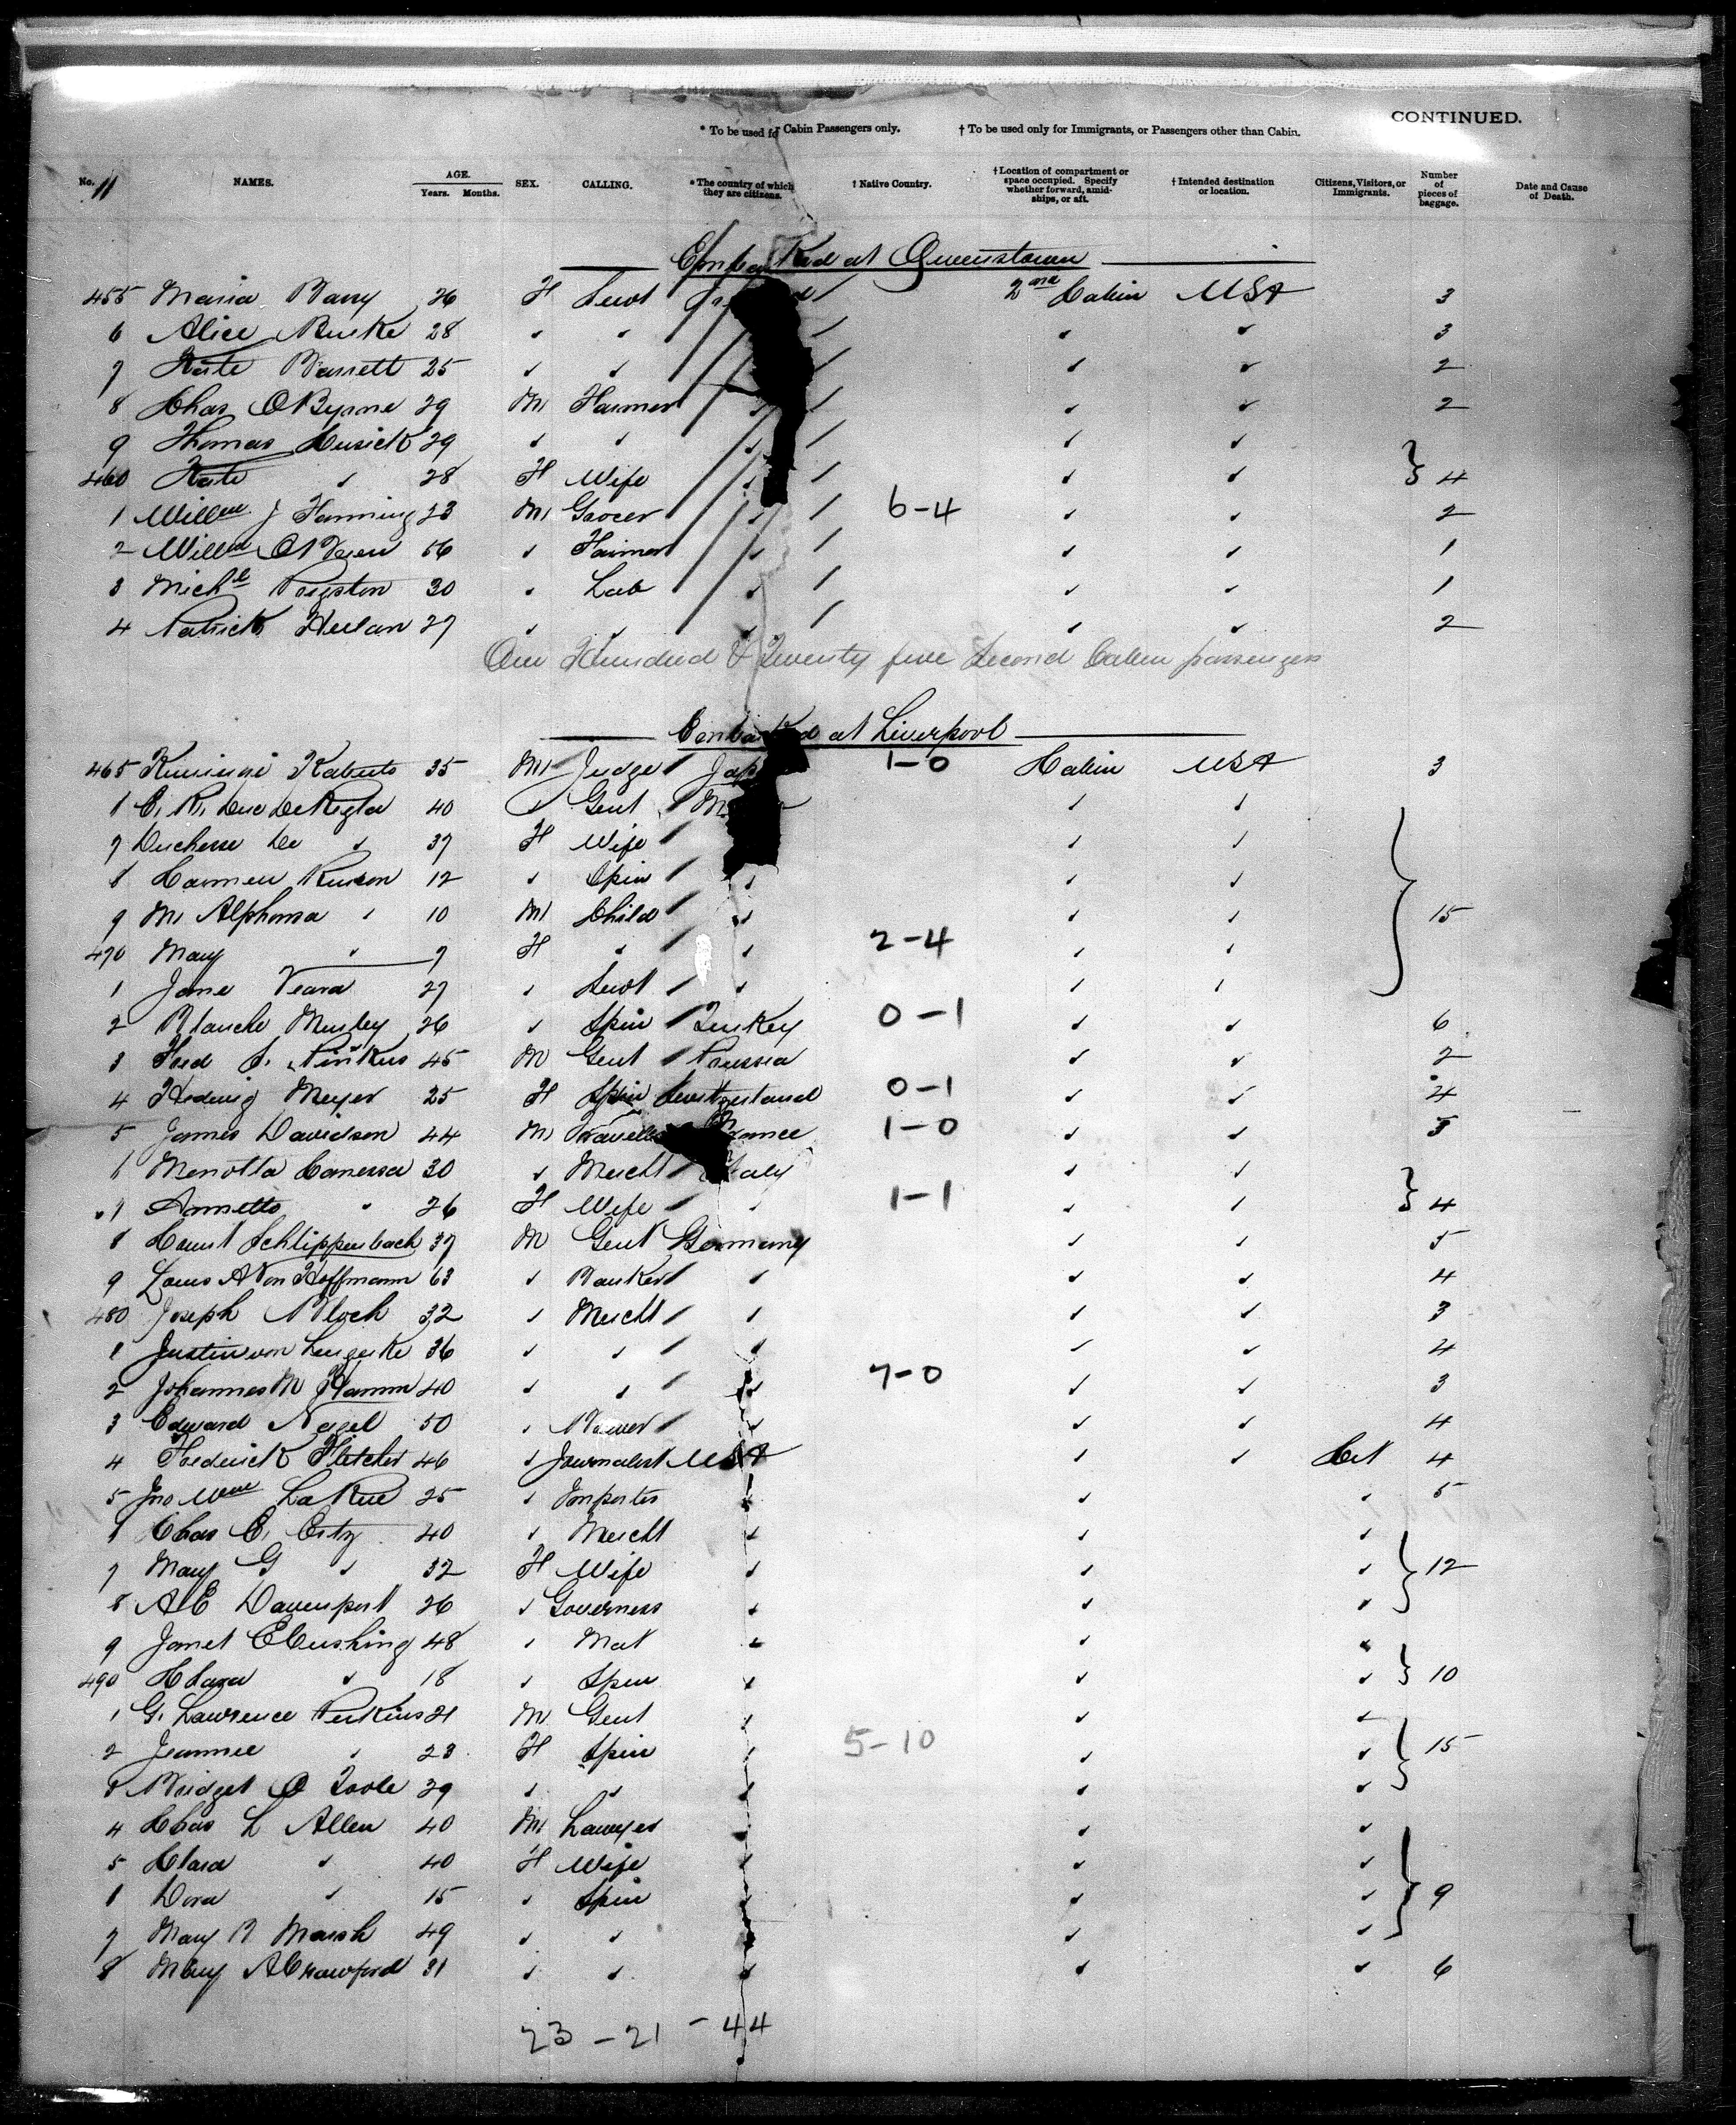 CONTINUED.
* To be used for Cabin Passengers only. † To be used only for Immigrants, or Passengers other than Cabin.
No. 11 NAMES. AGE. Years. Months. SEX. CALLING. *The country of which they are citizens. † Native Country. †Location of compartment or space occupied. Specify whether forward, amidships, or aft. †Intended destination or location. Citizens, Visitors, or Immigrants. Number of pieces of baggage. Date and Cause of Death.
Embarked at Queenstown
455 Maria Barry 26 F Servt 2nd Cabin USA 3
6 Alice Burke 28 " " " " 3
7 Kate Barrett 25 " " " " 2
8 Chas O'Byrne 29 M Farmer " " 2
9 Thomas Cusick 29 " " " " "
460 Kate " 28 F Wife " " " } 4
1 Willm J Fanning 23 M Grocer " 6-4 " " 2
2 Willm O'Brien 56 " Farmer " " " 1
3 Michl 30 " Lab " " " 1
4 Patrick 27 " " " " " 2
One Hundred & Twenty five Second Cabin passengers
Embarked at Liverpool
465 35 M Judge Jap 1-0 Cabin USA 3
6 40 " Gent " "
7 Duchesse De " 37 F Wife " "
8 Carmen 12 " Spin " " "
9 M Alphonsa " 10 M Child " " " } 15
470 Mary " 7 F " " 2-4 " "
1 Jane 27 " Servt " " "
2 Blanche 26 " Spin Turkey 0-1 " " 6
3 Fred 45 M Gent Prussia " " 2
4 Hedwig Meyer 25 F Spin Switzerland 0-1 " " 4
5 James Davidson 44 M Traveller France 1-0 " " 5
6 Menotta Canessa 30 " Mercht Italy " "
7 Annetta " 26 F Wife " 1-1 " " } 4
8 Count Schlippenbach 37 M Gent Germany " " 5
9 Louis A Von Hoffmann 63 " Banker " " " 4
480 Joseph Bloch 32 " Mercht " " " 3
1 Justin von 36 " " " " " 4
2 Johannes M Hamm 40 " " " 7-0 " " 3
3 Edward Nagel 50 " " " " 4
4 Frederick Fletcher 46 " Journalist USA " " Cit 4
5 Jno Wm LaRue 25 " Importer " " " 5
6 Chas E. 40 " Mercht " " "
7 Mary G " 32 F Wife " " " } 12
8 A E Davenport 26 " Governess " " "
9 Janet E Cushing 48 " Mat " " "
490 Clara " 18 " Spin " " " } 10
1 G. Lawrence Perkins 21 M Gent " " "
2 Jeannie " 23 F Spin " 5-10 " " } 15
3 Bridget O Toole 29 " " " " "
4 Chas L Allen 40 M Lawyer " " "
5 Clara " 40 F Wife " " "
6 Dora " 15 " Spin " " " } 9
7 Mary B Marsh 49 " " " " "
8 Mary A Crawford 31 " " " " " 6
23 - 21 - 44